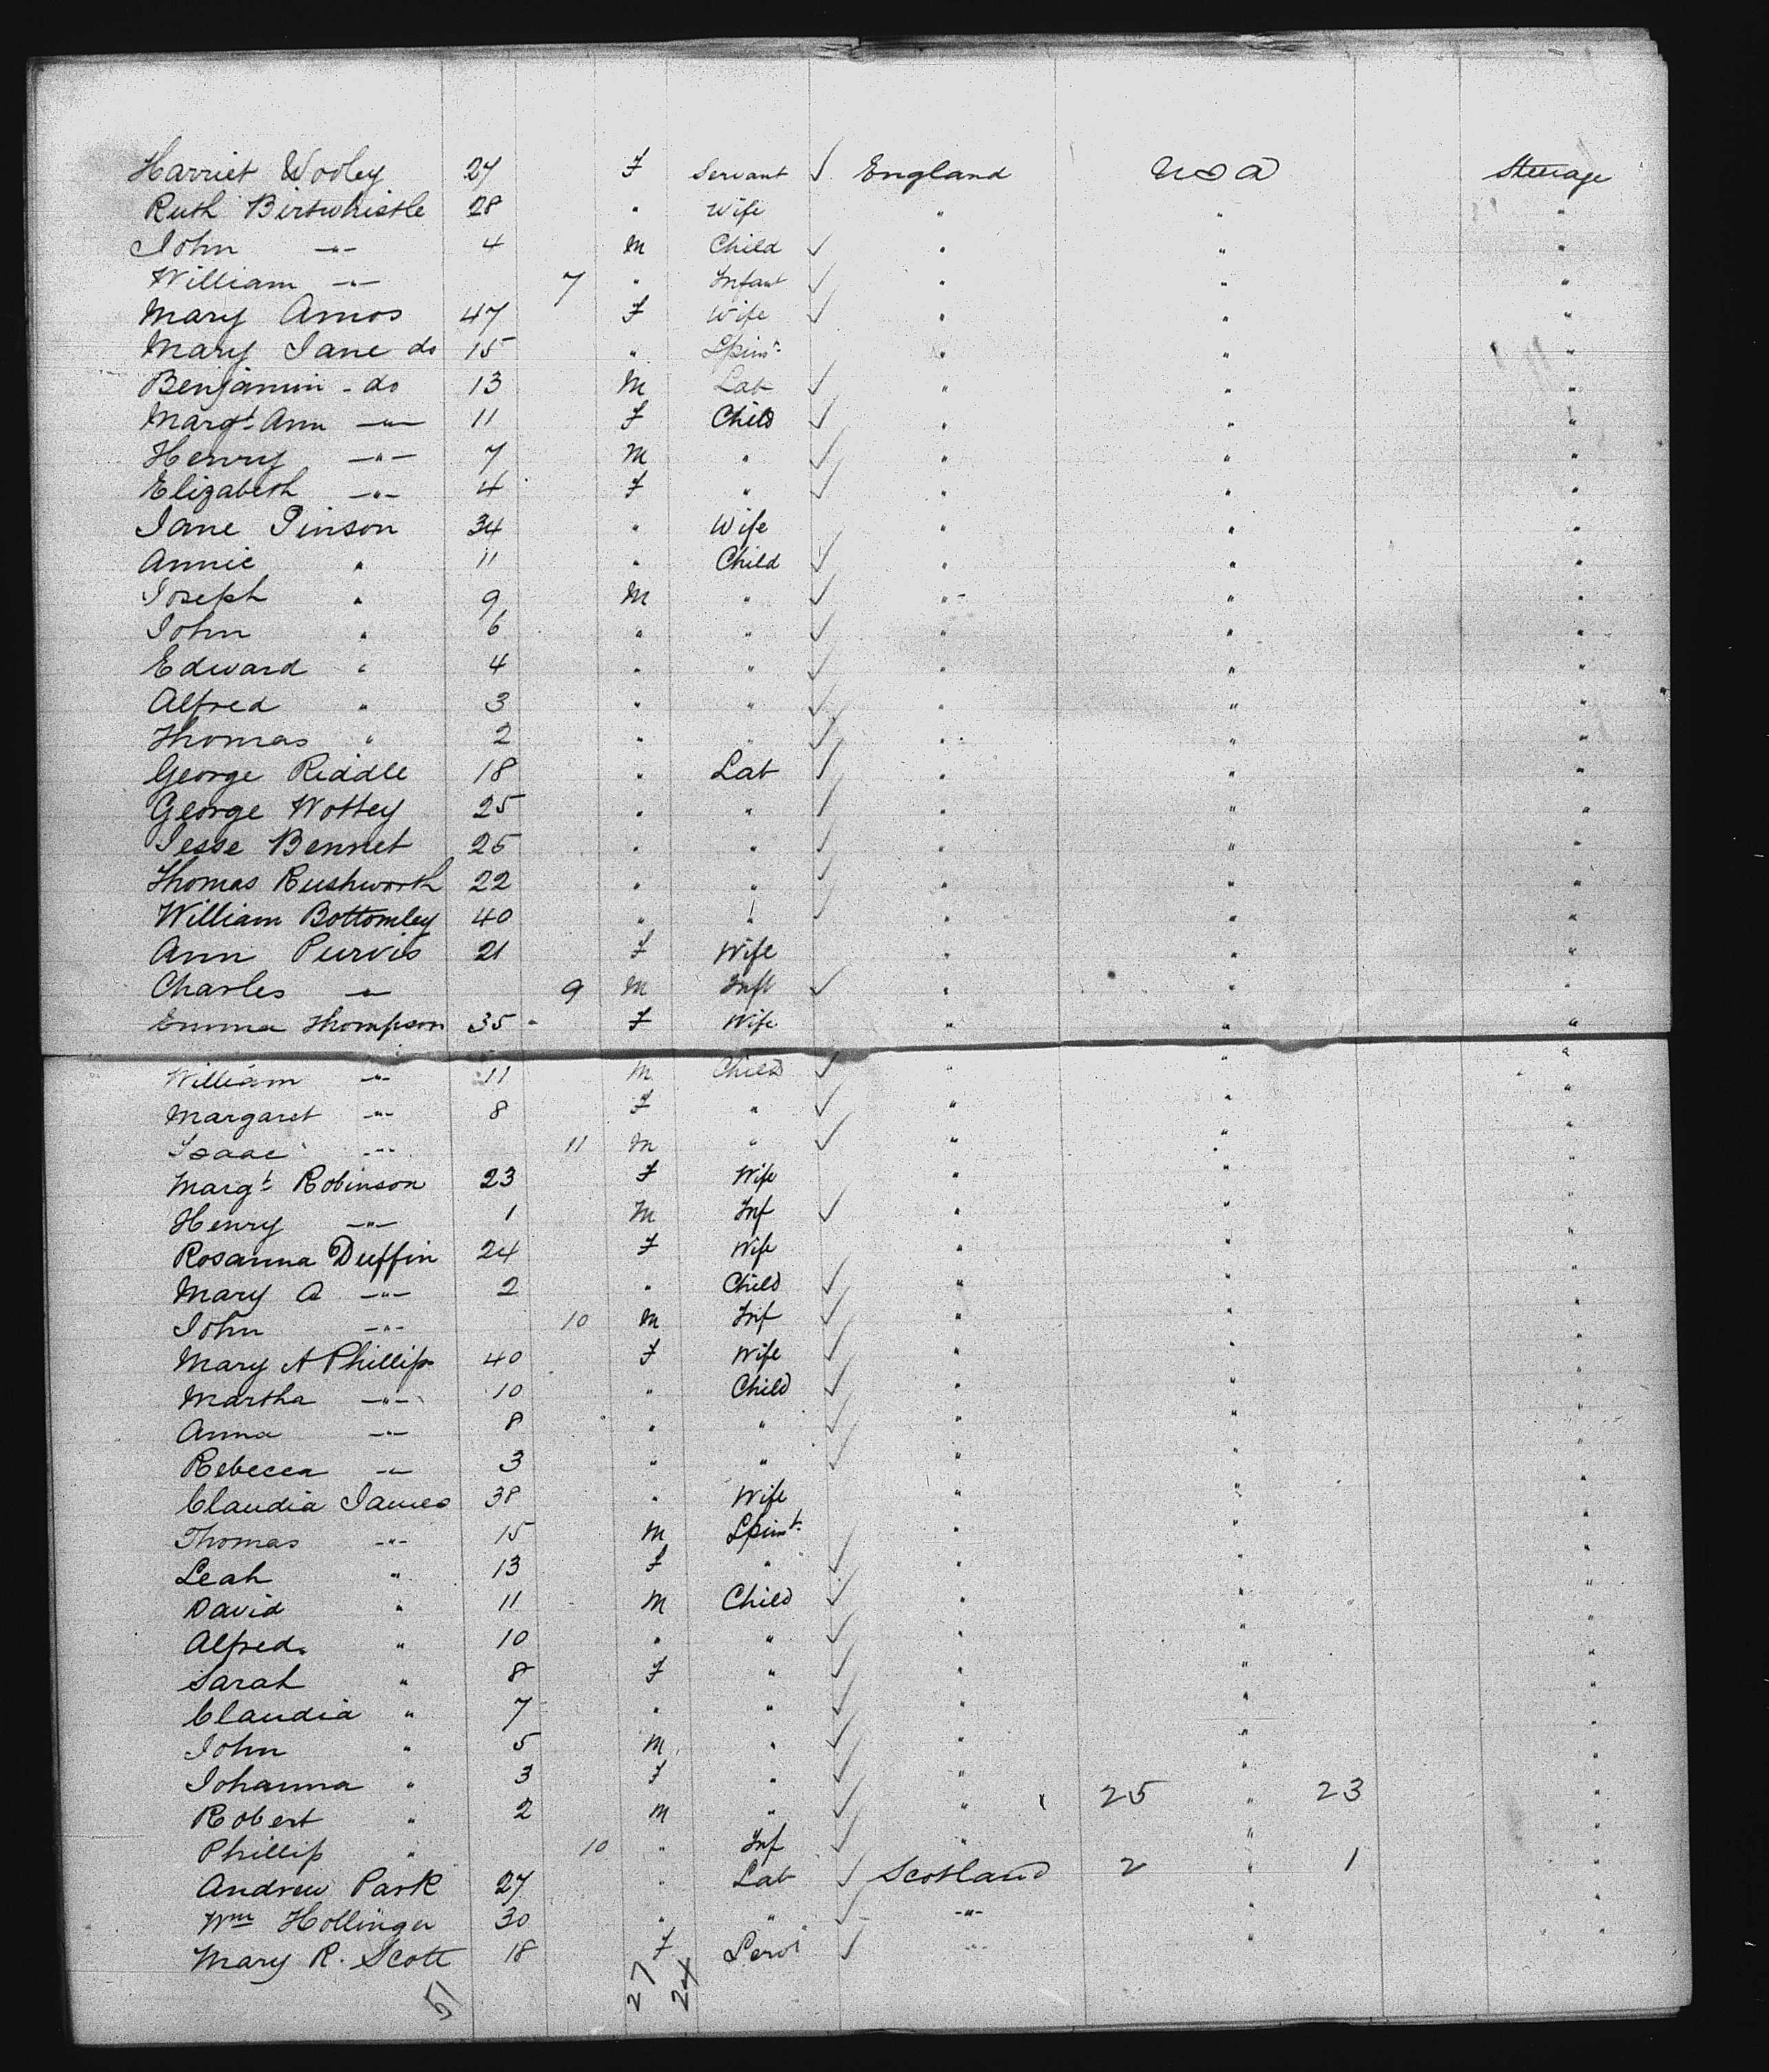 Harriet Wooley 27 F Servant ✓ England U S A Steerage
Ruth Birtwhistle 28 " Wife " " "
John -"- 4 M Child ✓ " " "
William -"- 7 " Infant ✓ " " "
Mary Amos 47 F Wife ✓ " " "
Mary Jane do 15 " Spinr " " "
Benjamin - do 13 M Lab ✓ " " "
Margt Ann -"- 11 F Child ✓ " " "
Henry -"- 7 M " ✓ " " "
Elizabeth -"- 4 F " ✓ " " "
Jane Pinson 34 " Wife " " "
Annie " 11 " Child ✓ " " "
Joseph " 9 M " ✓ " " "
John " 6 " " ✓ " " "
Edward " 4 " " ✓ " " "
Alfred " 3 " " ✓ " " "
Thomas " 2 " " ✓ " " "
George Riddle 18 " Lab ✓ " " "
George Wottey 25 " " ✓ " " "
Jesse Bennet 25 " " ✓ " " "
Thomas Rushworth 22 " " ✓ " " "
William Bottomley 40 " " ✓ " " "
Ann Purvis 21 F Wife " " "
Charles -"- 9 M Inft ✓ " " "
Emma Thompson 35 F Wife " " "
William -"- 11 M Child ✓ " " "
Margaret -"- 8 F " ✓ " " "
Isaac -"- 11 M " ✓ " " "
Margt Robinson 23 F Wife " " "
Henry -"- 1 M Inf ✓ " " "
Rosanna Duffin 24 F Wife " " "
Mary A -"- 2 " Child ✓ " " "
John -"- 10 M Inf ✓ " " "
Mary A Phillips 40 F Wife ✓ " " "
Martha -"- 10 " Child ✓ " " "
Anna -"- 8 " " ✓ " " "
Rebecca -"- 3 " " ✓ " " "
Claudia James 38 " Wife " " "
Thomas -"- 15 M Spinst " " "
Leah " 13 F " ✓ " " "
David " 11 M Child ✓ " " "
Alfred " 10 " " ✓ " " "
Sarah " 8 F " ✓ " " "
Claudia " 7 " " ✓ " " "
John " 5 M " ✓ " " "
Johanna " 3 F " ✓ " " "
Robert " 2 M " ✓ " 25 " 23 "
Phillip " 10 " Inf ✓ " " "
Andrew Park 27 " Lab ✓ Scotland 2 " 1 "
Wm Hollinger 30 " " ✓ -"- " "
Mary R. Scott 18 F Servt ✓ -"- " "
51 27 24